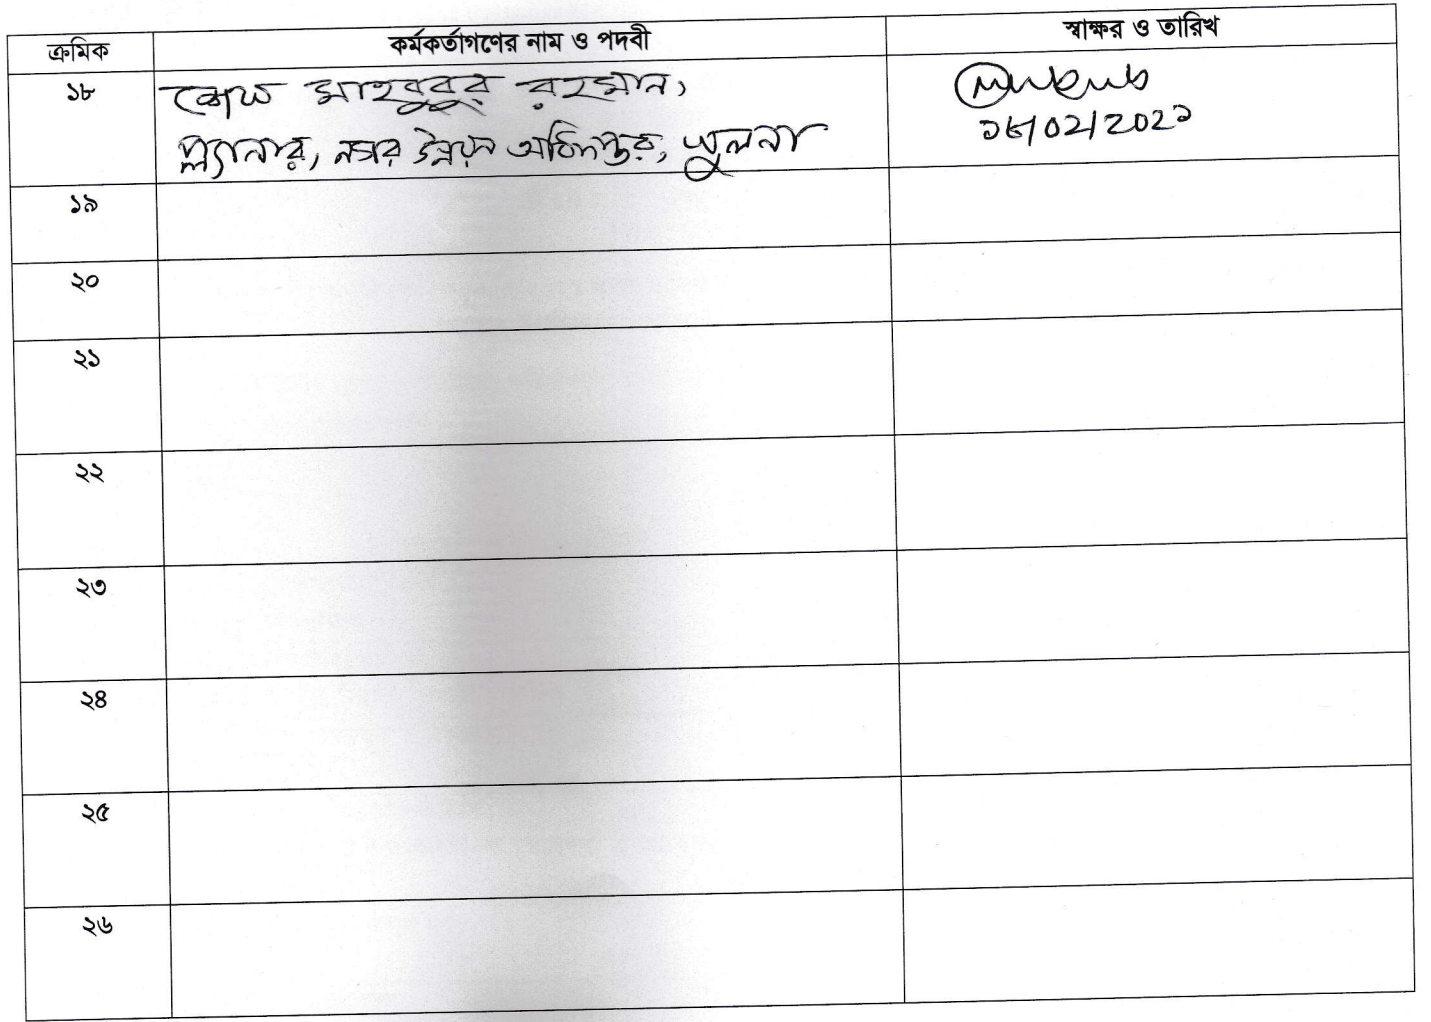 ক্রমিক কর্মকর্তাগণের নাম ও পদবী স্বাক্ষর ও তারিখ
১৮ শেখ মাহবুবুর রহমান,
প্ল্যানার, নগর উন্নয়ন অধিদপ্তর, খুলনা
১৯
২০
২১
২২
২৩
২৪
২৫
২৬